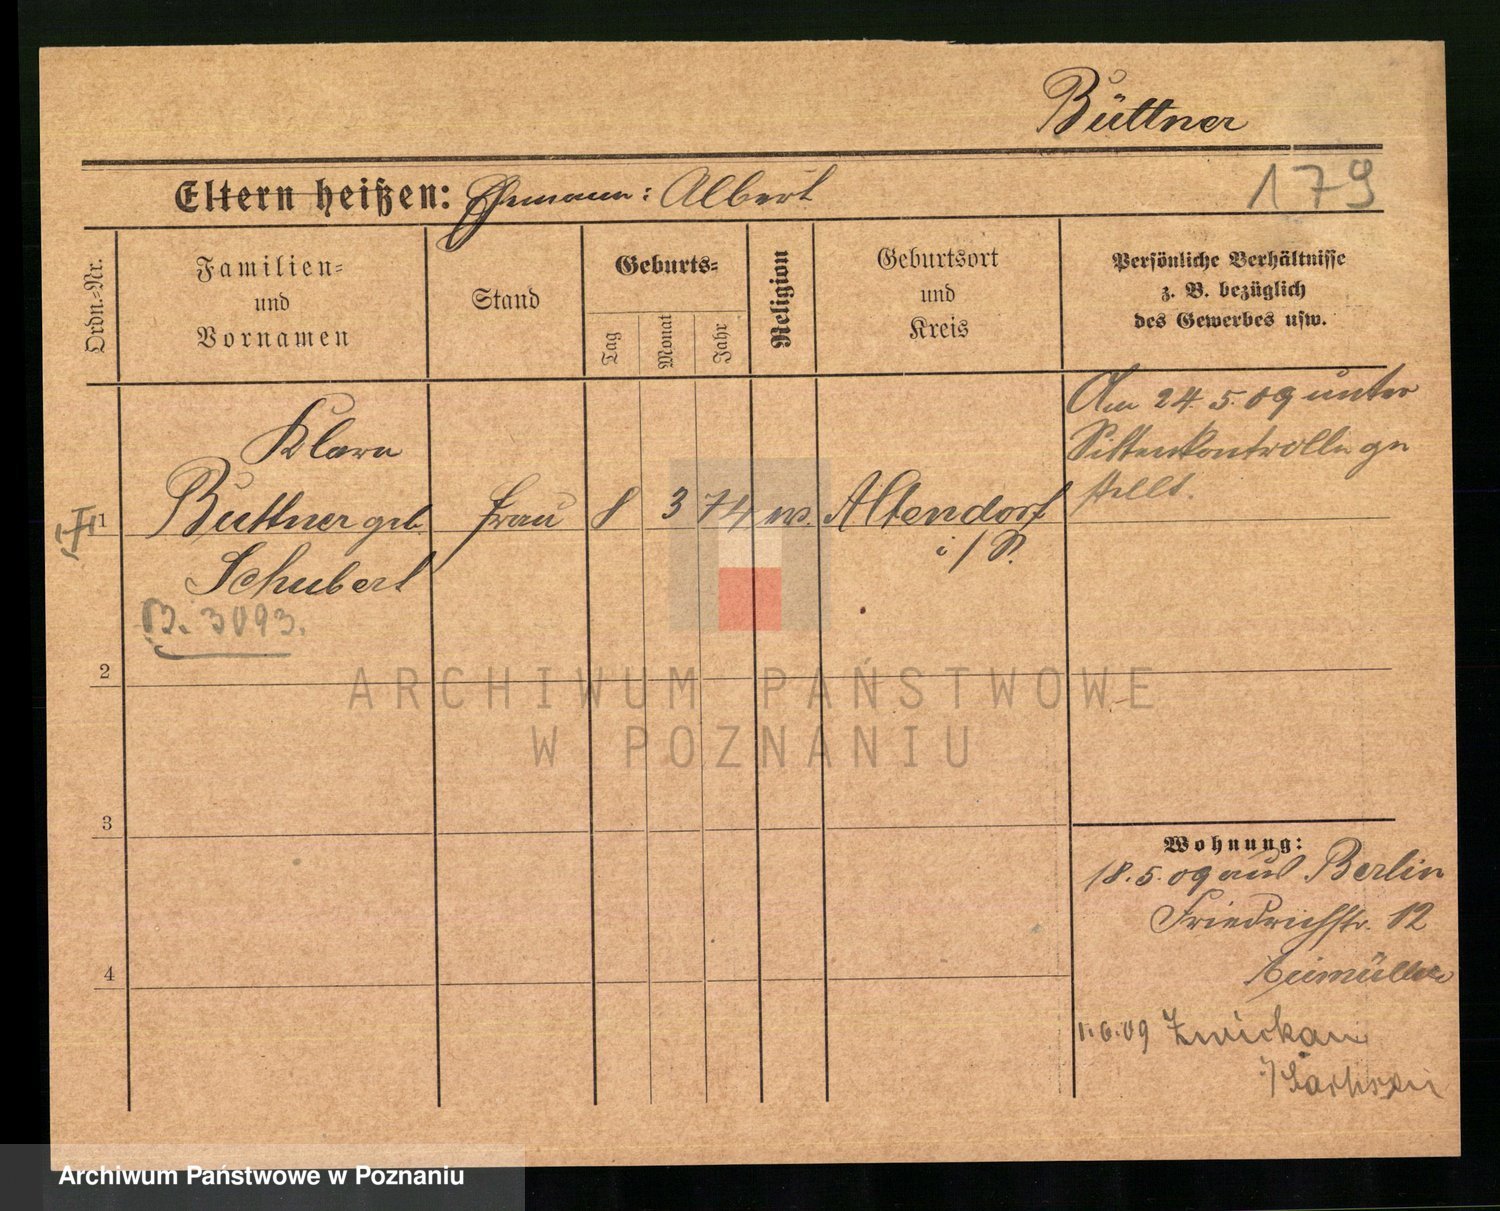 Büttner
179
Eltern heißen: Ehemann: Albert
Ordn.-Nr.
Familien-
und
Vornamen
Stand
Geburts-
Tag
Monat
Jahr
Religion
Geburtsort
und
Kreis
Persönliche Verhältnisse
z. B. bezüglich
des Gewerbes usw.
1
Klara
Büttner geb.
Schubert
B. 3093.
Frau
8
3
74
ev.
Altendorf
i/S.
Am 24.5.09 unter
Sittenkontrolle ge
stellt.
2
3
4
Wohnung:
18.5.09 aus Berlin
Friedrichstr. 12
1.6.09 Zwickau
i/Sachsen
ARCHIWUM PAŃSTWOWE
W POZNANIU
Archiwum Państwowe w Poznaniu